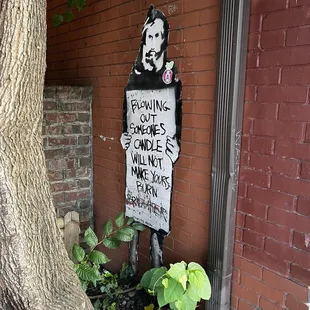 BLOWING
OUT
SOMEONES
CANDLE
WILL NOT
MAKE YOURS
BURN